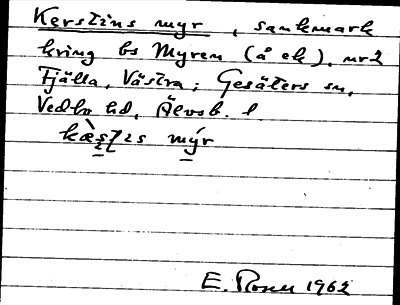 Kerstins myr, sankmark
kring bs Myren (å ek), nr 2
Fjälla, Västra; Gesäters sn,
Vedbo hd, Älvsb. l
myr
E. 1962